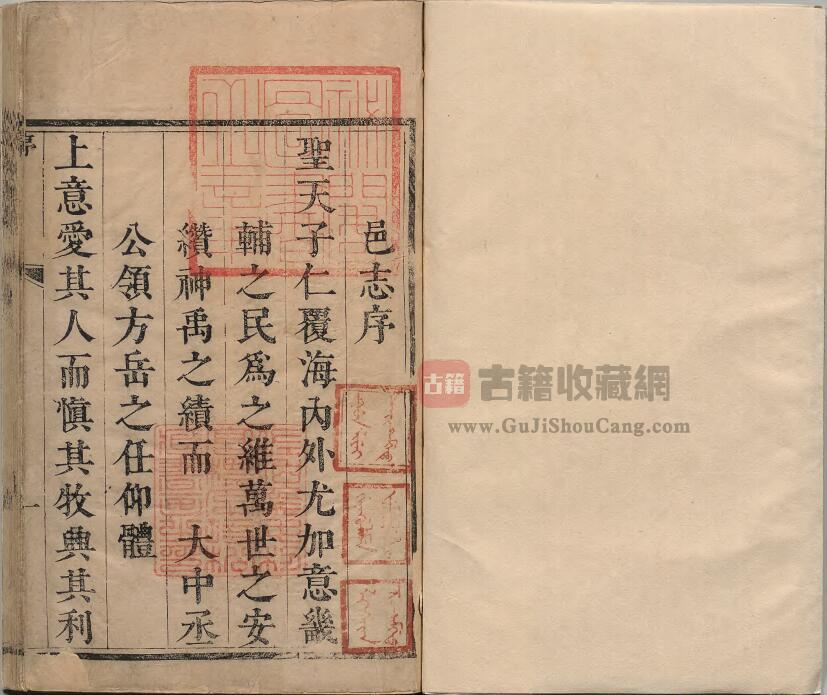 邑志序
聖天子仁覆海內外尤加意畿
輔之民為之維萬世之安
纘神禹之績而 大中丞
公領方岳之任仰體
上意愛其人而慎其牧典其利
序
一
古籍
古籍收藏網
www.GuJiShouCang.com